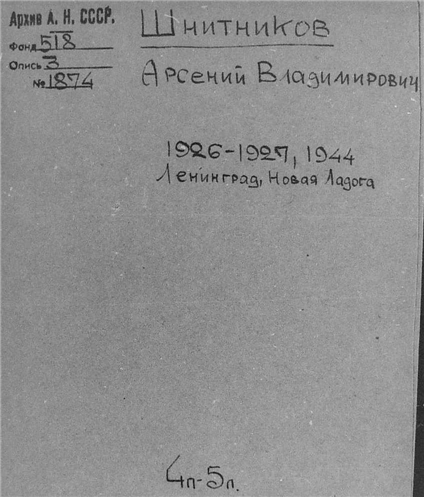 Архив А. Н. СССР.
Фонд 518
Опись 3
№ 1874
Шнитников
Арсений Владимирович
1926-1927, 1944
Ленинград, Новая Ладога
4п-5л.